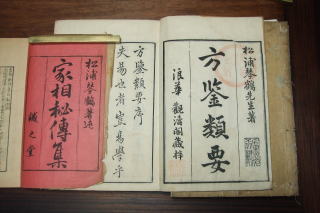 松浦琴鶴先生著
方鑒類要
浪華 觀濤閣藏梓
方鑒類要序
松浦琴鶴著述
家相秘傳集
誠之堂